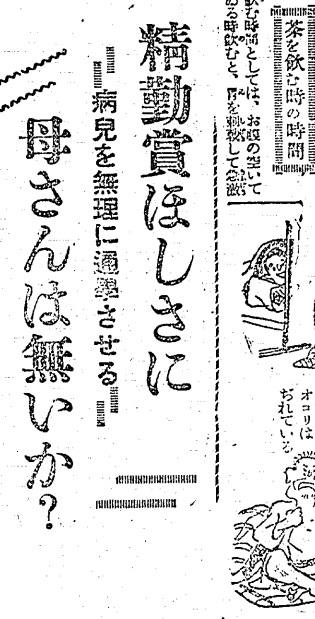 茶を飲む時の時間
飲む時間としては、お腹の空いて
ゐる時飲むと、胃を刺激して急激
オコリは
ぢれている
精勤賞ほしさに
病兒を無理に通學させる
母さんは無いか?